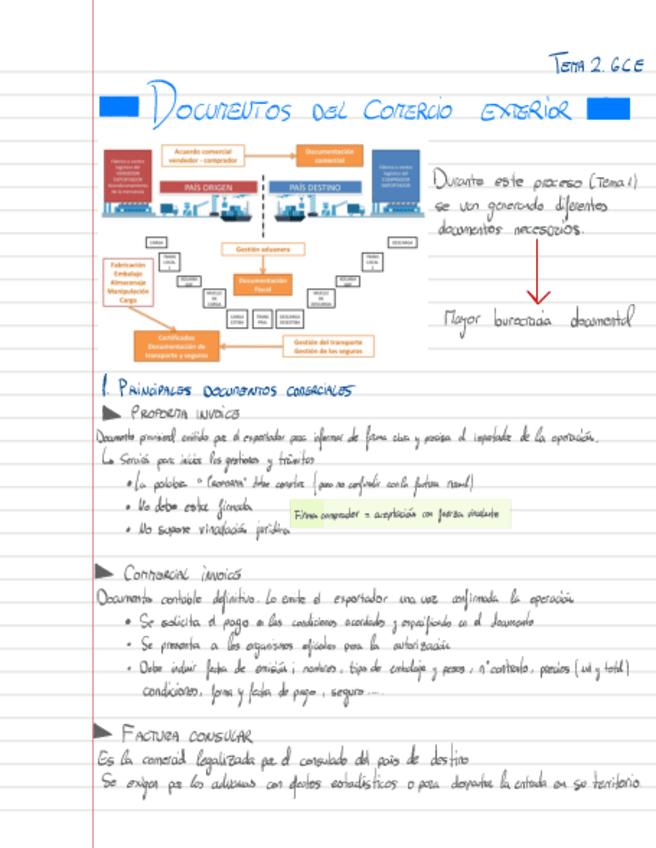 TEMA 2. GCE
DOCUMENTOS DEL COMERCIO EXTERIOR
Acuerdo comercial
vendedor - comprador
Documentación
comercial
Fábrica o centro
logístico del
VENDEDOR
EXPORTADOR
de la mercancía
Fábrica o centro
logístico del
COMPRADOR
IMPORTADOR
PAÍS ORIGEN
PAÍS DESTINO
Durante este proceso (Tema 1)
se van generando diferentes
documentos necesarios.
Mayor burocracia documental
CARGA
DESCARGA
Gestión aduanera
Documentación
fiscal
Fabricación
Embalaje
Almacenaje
Manipulación
Carga
Certificados
Documentación de
transporte y seguros
Gestión del transporte
Gestión de los seguros
1. PRINCIPALES DOCUMENTOS COMERCIALES
PROFORMA INVOICE
Documento provisional emitido por el exportador para informar de forma clara y precisa al importador de la operación.
Servirá para iniciar las gestiones y trámites
• La palabra "PROFORMA" debe constar (para no confundir con la factura normal)
• No debe estar firmada
Firma comprador = aceptación con fuerza vinculante
• No supone vinculación jurídica
COMMERCIAL INVOICE
Documento contable definitivo. Lo emite el exportador una vez confirmada la operación
• Se solicita el pago en las condiciones acordadas y especificadas en el documento
• Se presenta a los organismos oficiales para la autorización
• Debe incluir fecha de emisión; nombres, tipo de embalaje y pesos, nº contrato, precios (ud y total)
condiciones, forma y fecha de pago, seguro....
FACTURA CONSULAR
Es la comercial legalizada por el consulado del país de destino
Se exigen por las aduanas con efectos estadísticos o para despachar la entrada en su territorio